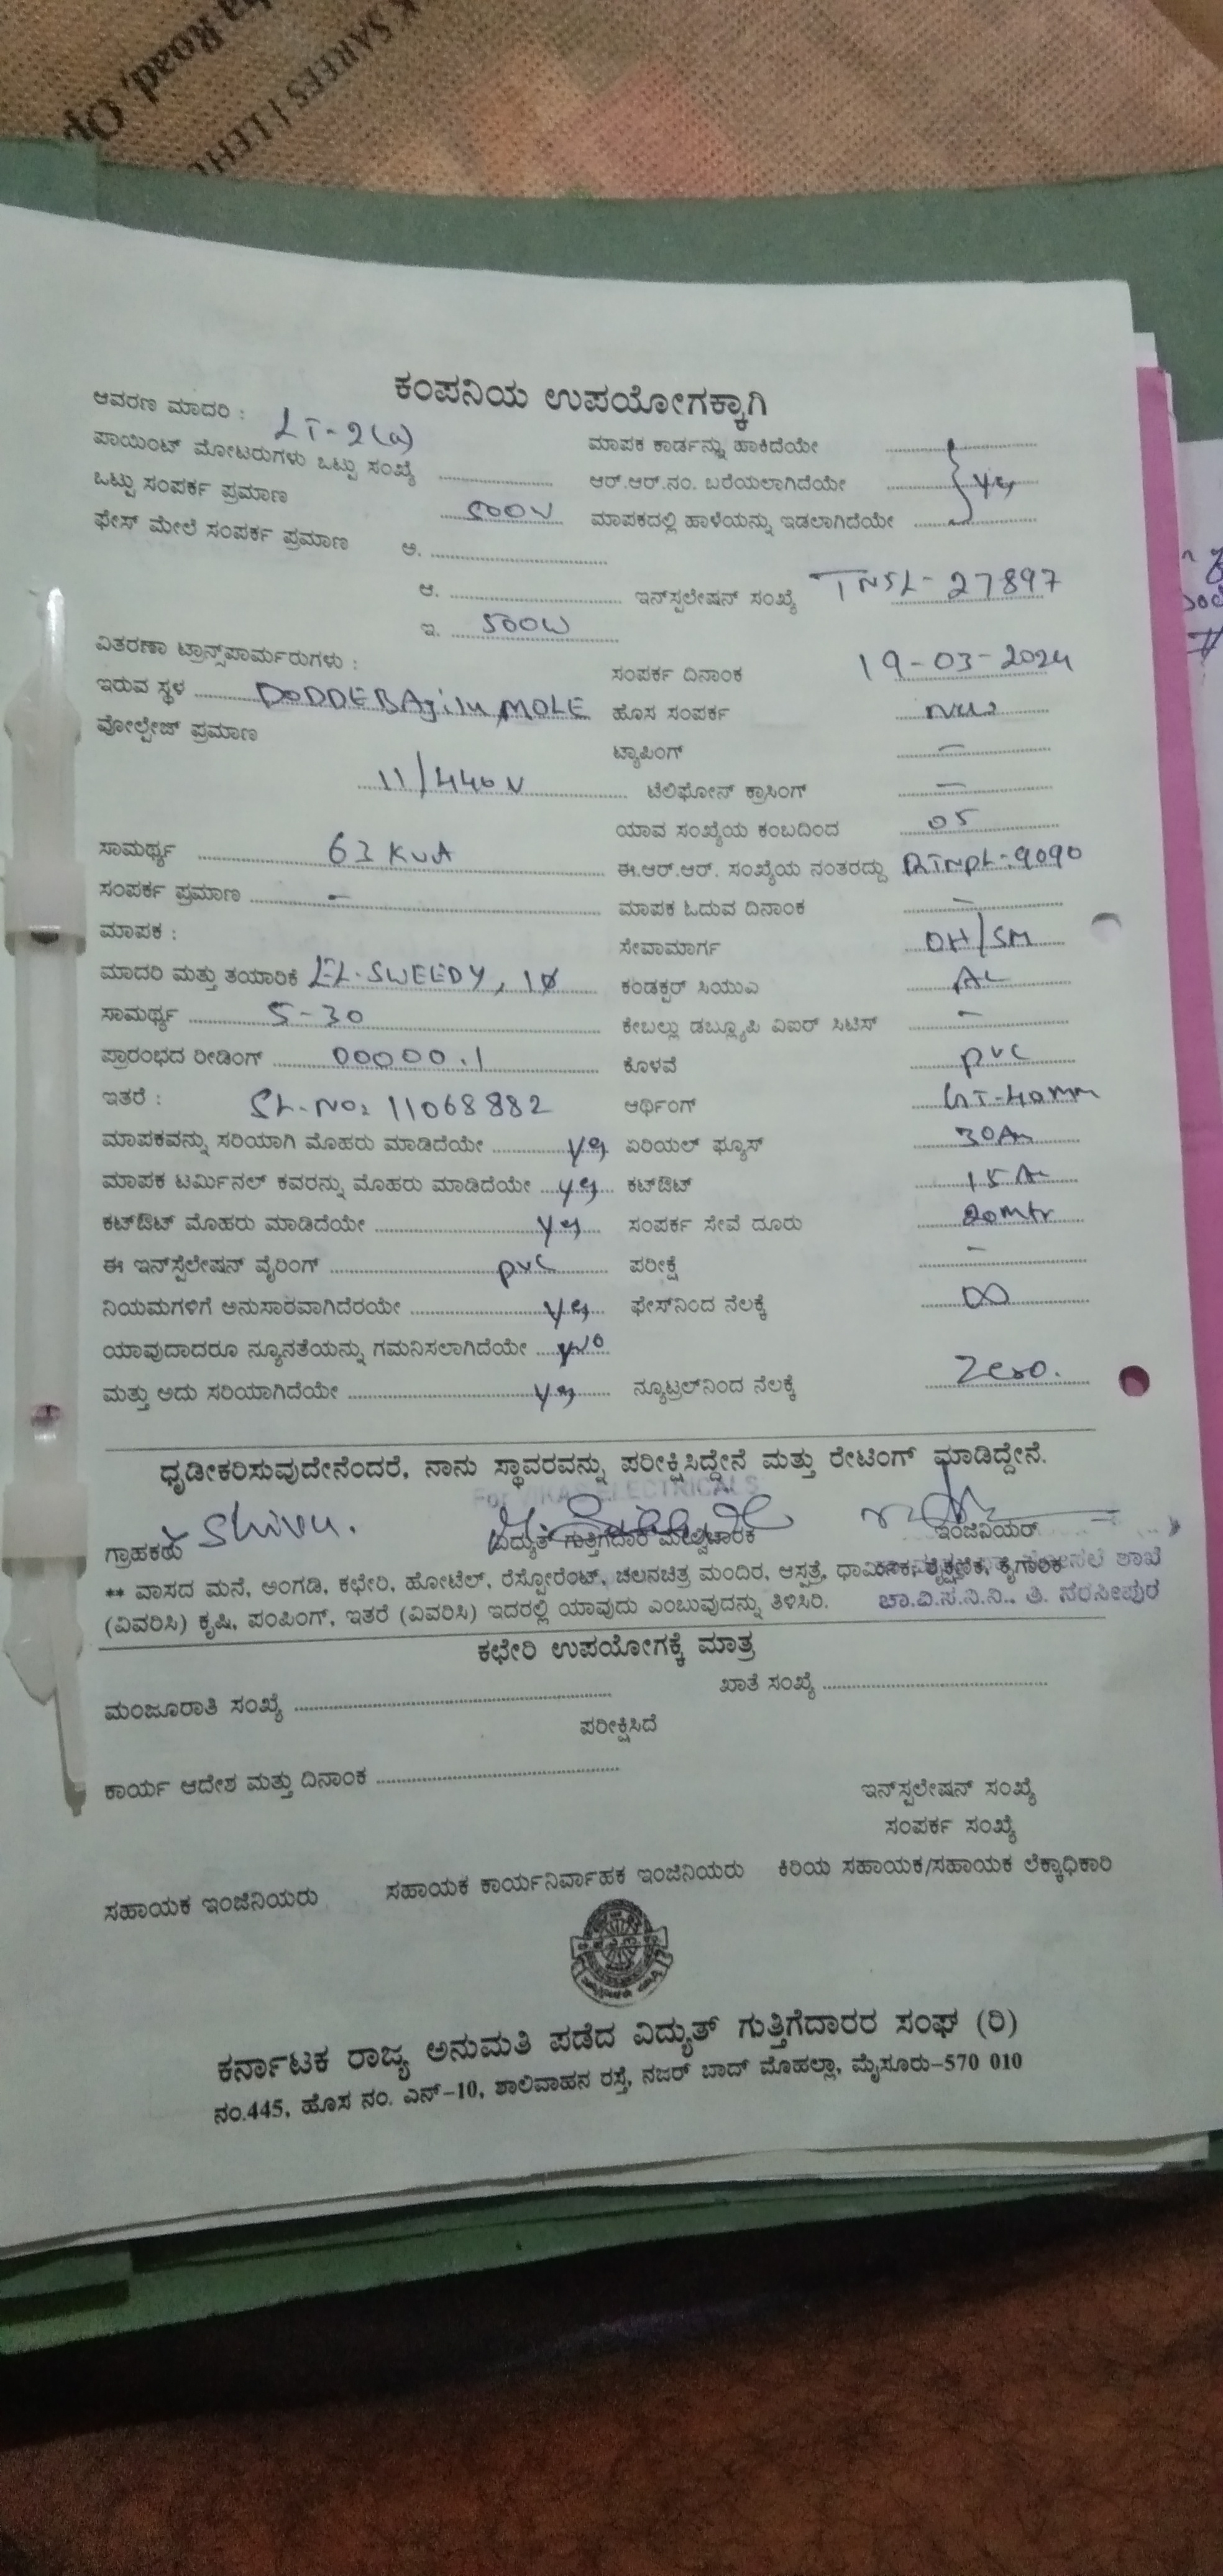 Road, Op
K SAREES | LEH
ಕಂಪನಿಯ ಉಪಯೋಗಕ್ಕಾಗಿ
ಆವರಣ ಮಾದರಿ : LT-2(a)
ಮಾಪಕ ಕಾರ್ಡನ್ನು ಹಾಕಿದೆಯೇ
ಪಾಯಿಂಟ್ ಮೋಟರುಗಳು ಒಟ್ಟು ಸಂಖ್ಯೆ
ಆರ್.ಆರ್.ನಂ. ಬರೆಯಲಾಗಿದೆಯೇ yes
ಒಟ್ಟು ಸಂಪರ್ಕ ಪ್ರಮಾಣ 500W
ಮಾಪಕದಲ್ಲಿ ಹಾಳೆಯನ್ನು ಇಡಲಾಗಿದೆಯೇ
ಫೇಸ್ ಮೇಲೆ ಸಂಪರ್ಕ ಪ್ರಮಾಣ ಅ.
ಆ. ಇನ್‌ಸ್ಪಲೇಷನ್ ಸಂಖ್ಯೆ TNSL-27897
ಇ. 500W
ವಿತರಣಾ ಟ್ರಾನ್ಸ್‌ಪಾರ್ಮರುಗಳು :
ಸಂಪರ್ಕ ದಿನಾಂಕ 19-03-2024
ಇರುವ ಸ್ಥಳ DODDEBAgilu MOLE
ಹೊಸ ಸಂಪರ್ಕ
ವೋಲ್ಟೇಜ್ ಪ್ರಮಾಣ
ಟ್ಯಾಪಿಂಗ್ –
11/440V ಟೆಲಿಫೋನ್ ಕ್ರಾಸಿಂಗ್ –
ಯಾವ ಸಂಖ್ಯೆಯ ಕಂಬದಿಂದ 05
ಸಾಮರ್ಥ್ಯ 63 KVA
ಈ.ಆರ್.ಆರ್. ಸಂಖ್ಯೆಯ ನಂತರದ್ದು
ಸಂಪರ್ಕ ಪ್ರಮಾಣ –
ಮಾಪಕ ಓದುವ ದಿನಾಂಕ –
ಮಾಪಕ :
ಸೇವಾಮಾರ್ಗ OH/SM
ಮಾದರಿ ಮತ್ತು ತಯಾರಿಕೆ EL-SWEEDY, 1Ø
ಕಂಡಕ್ಟರ್ ಸಿಯುಎ AL
ಸಾಮರ್ಥ್ಯ 5-30
ಕೇಬಲ್ಲು ಡಬ್ಲ್ಯೂಪಿ ವಿಐರ್ ಸಿಟಿಸ್ –
ಪ್ರಾರಂಭದ ರೀಡಿಂಗ್ 00000.1
ಕೊಳವೆ pvc
ಇತರೆ : SL-NO: 11068882
ಆರ್ಥಿಂಗ್ GI-40mm
ಮಾಪಕವನ್ನು ಸರಿಯಾಗಿ ಮೊಹರು ಮಾಡಿದೆಯೇ yes
ಏರಿಯಲ್ ಫ್ಯೂಸ್ 30A
ಮಾಪಕ ಟರ್ಮಿನಲ್ ಕವರನ್ನು ಮೊಹರು ಮಾಡಿದೆಯೇ yes
ಕಟ್‌ಔಟ್ 15A
ಕಟ್‌ಔಟ್ ಮೊಹರು ಮಾಡಿದೆಯೇ yes
ಸಂಪರ್ಕ ಸೇವೆ ದೂರು 20mtr
ಈ ಇನ್‌ಸ್ಪೆಲೇಷನ್ ವೈರಿಂಗ್ pvc
ಪರೀಕ್ಷೆ –
ನಿಯಮಗಳಿಗೆ ಅನುಸಾರವಾಗಿದೆರಯೇ yes
ಫೇಸ್‌ನಿಂದ ನೆಲಕ್ಕೆ ∞
ಯಾವುದಾದರೂ ನ್ಯೂನತೆಯನ್ನು ಗಮನಿಸಲಾಗಿದೆಯೇ No
ಮತ್ತು ಅದು ಸರಿಯಾಗಿದೆಯೇ yes
ನ್ಯೂಟ್ರಲ್‌ನಿಂದ ನೆಲಕ್ಕೆ Zero.
ಧೃಡೀಕರಿಸುವುದೇನೆಂದರೆ, ನಾನು ಸ್ಥಾವರವನ್ನು ಪರೀಕ್ಷಿಸಿದ್ದೇನೆ ಮತ್ತು ರೇಟಿಂಗ್ ಮಾಡಿದ್ದೇನೆ.
For VIKAS ELECTRICALS
ಗ್ರಾಹಕರು Shivu. ವಿದ್ಯುತ್ ಗುತ್ತಿಗೆದಾರ ಮೇಲ್ವಿಚಾರಕ ಇಂಜಿನಿಯರ್
** ವಾಸದ ಮನೆ, ಅಂಗಡಿ, ಕಛೇರಿ, ಹೋಟೆಲ್, ರೆಸ್ಟೋರೆಂಟ್, ಚಲನಚಿತ್ರ ಮಂದಿರ, ಆಸ್ಪತ್ರೆ, ಧಾರ್ಮಿಕ, ಶೈಕ್ಷಣಿಕ, ಕೈಗಾರಿಕ ಶಾಖೆ
(ವಿವರಿಸಿ) ಕೃಷಿ, ಪಂಪಿಂಗ್, ಇತರೆ (ವಿವರಿಸಿ) ಇದರಲ್ಲಿ ಯಾವುದು ಎಂಬುವುದನ್ನು ತಿಳಿಸಿರಿ. ಚಾ.ವಿ.ಸ.ನಿ.ನಿ., ತಿ. ನರಸೀಪುರ
ಕಛೇರಿ ಉಪಯೋಗಕ್ಕೆ ಮಾತ್ರ
ಮಂಜೂರಾತಿ ಸಂಖ್ಯೆ ಖಾತೆ ಸಂಖ್ಯೆ
ಪರೀಕ್ಷಿಸಿದೆ
ಕಾರ್ಯ ಆದೇಶ ಮತ್ತು ದಿನಾಂಕ
ಇನ್‌ಸ್ಪಲೇಷನ್ ಸಂಖ್ಯೆ
ಸಂಪರ್ಕ ಸಂಖ್ಯೆ
ಸಹಾಯಕ ಇಂಜಿನಿಯರು ಸಹಾಯಕ ಕಾರ್ಯನಿರ್ವಾಹಕ ಇಂಜಿನಿಯರು ಕಿರಿಯ ಸಹಾಯಕ/ಸಹಾಯಕ ಲೆಕ್ಕಾಧಿಕಾರಿ
ಕರ್ನಾಟಕ ರಾಜ್ಯ ಅನುಮತಿ ಪಡೆದ ವಿದ್ಯುತ್ ಗುತ್ತಿಗೆದಾರರ ಸಂಘ (ರಿ)
ನಂ.445, ಹೊಸ ನಂ. ಎನ್-10, ಶಾಲಿವಾಹನ ರಸ್ತೆ, ನಜರ್ ಬಾದ್ ಮೊಹಲ್ಲಾ, ಮೈಸೂರು-570 010